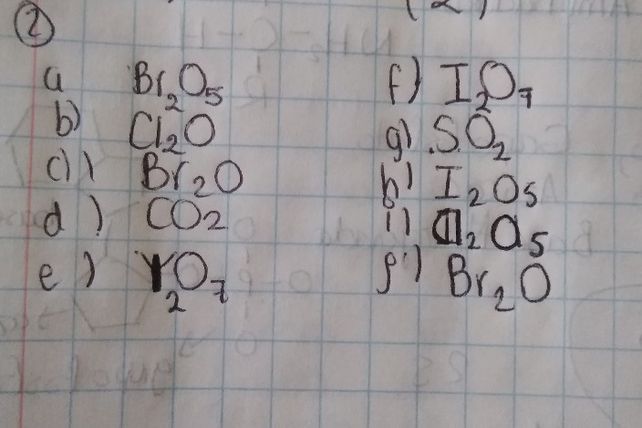 2
a Br₂O₅
b) Cl₂O
c)) Br₂O
d ) CO₂
e ) Y₂O₇
f) I₂O₇
g) SO₂
h) I₂O₅
i) Cl₂O₅
j) Br₂O